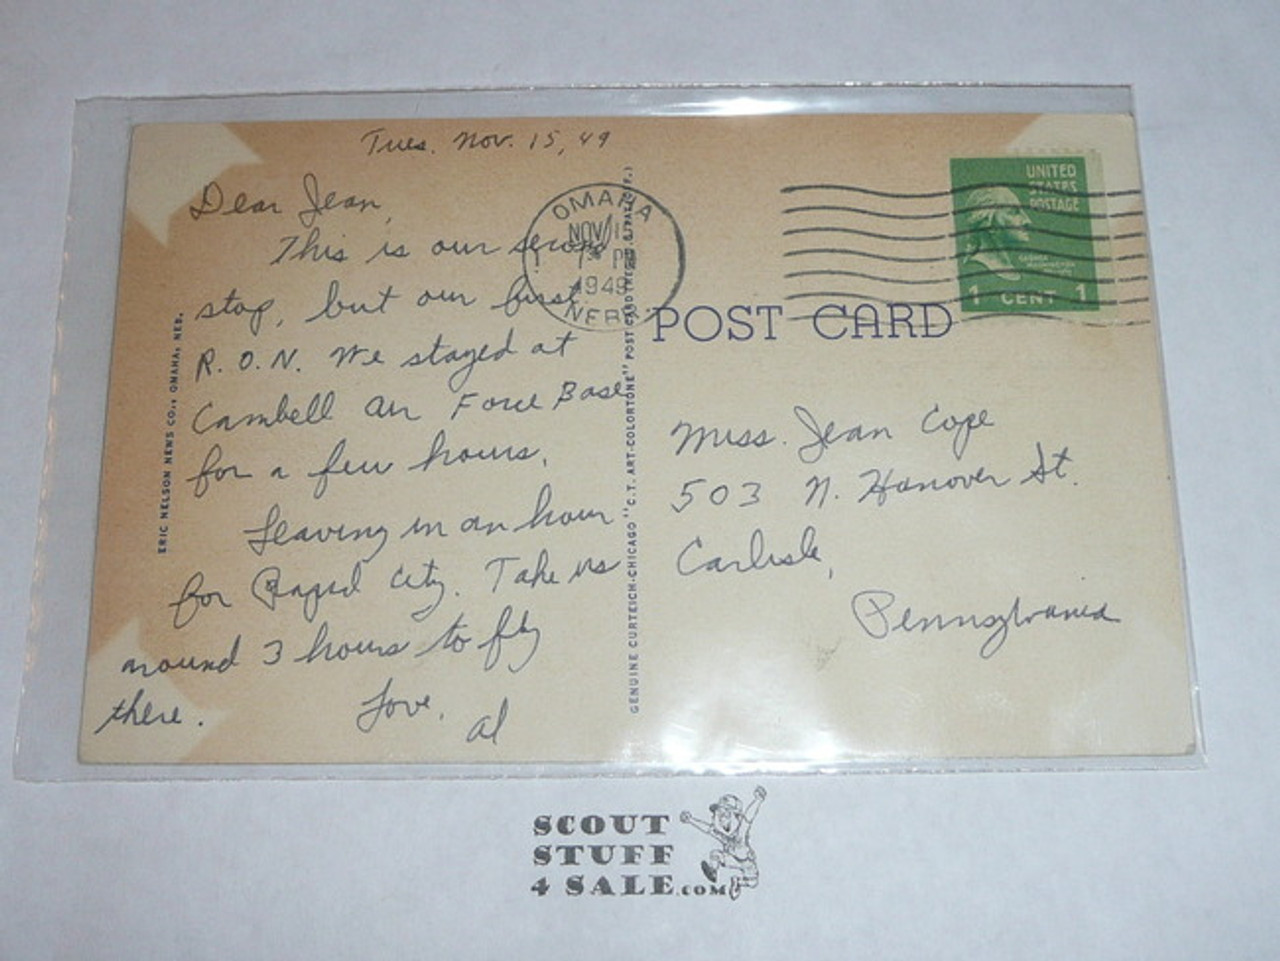 Tues. Nov. 15, 49
Dear Jean,
This is our second
stop, but our first
R.O.N. We stayed at
Cambell Air Force Base
for a few hours.
Leaving in an hour
for Rapid City. Take us
around 3 hours to fly
there.
Love,
Al
ERIC NELSON NEWS CO., OMAHA, NEB.
GENUINE CURTEICH-CHICAGO "C.T. ART-COLORTONE" POST CARD
OMAHA
NOV
PM
1949
NEBR
UNITED
STATES
POSTAGE
1 CENT 1
POST CARD
Miss. Jean Cope
503 N. Hanover St.
Carlisle,
Pennsylvania
SCOUT
STUFF
4 SALE.COM